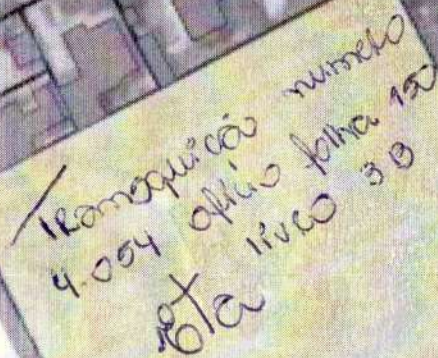 Transquicão numero
4.054 oficio folha 150
livro 3B
Eta